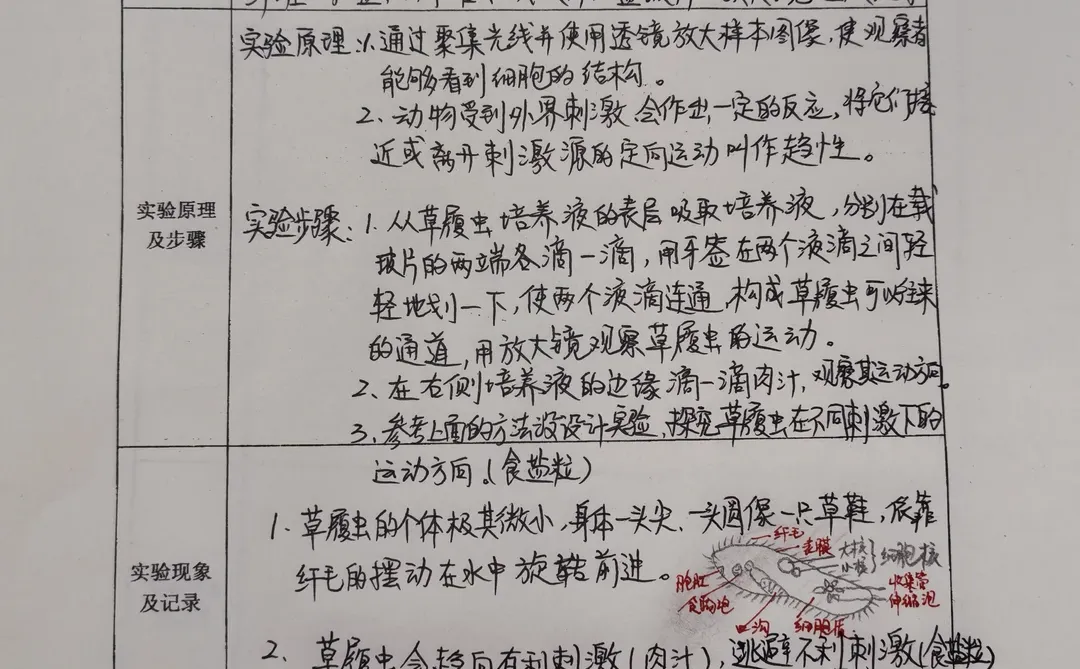 实验原理
及步骤
实验原理：1.通过聚集光线并使用透镜放大样本图像，使观察者
能够看到细胞的结构。
2、动物受到外界刺激会作出一定的反应，将它们接
近或离开刺激源的定向运动叫作趋性。
实验步骤：1.从草履虫培养液的表层吸取培养液，分别在载
玻片的两端各滴一滴，用牙签在两个液滴之间轻
轻地划一下，使两个液滴连通，构成草履虫可以往来
的通道，用放大镜观察草履虫的运动。
2、在右侧培养液的边缘滴一滴肉汁，观察其运动方向。
3、参考上面的方法设计实验，探究草履虫在不同刺激下的
运动方向。（食盐粒）
实验现象
及记录
1、草履虫的个体极其微小，身体一头尖、一头圆像一只草鞋，依靠
纤毛的摆动在水中旋转前进。
纤毛
表膜
大核
小核
细胞核
胞肛
食物泡
收集管
伸缩泡
口沟
细胞质
2、草履虫会趋向有利刺激（肉汁），逃避不利刺激（食盐粒）